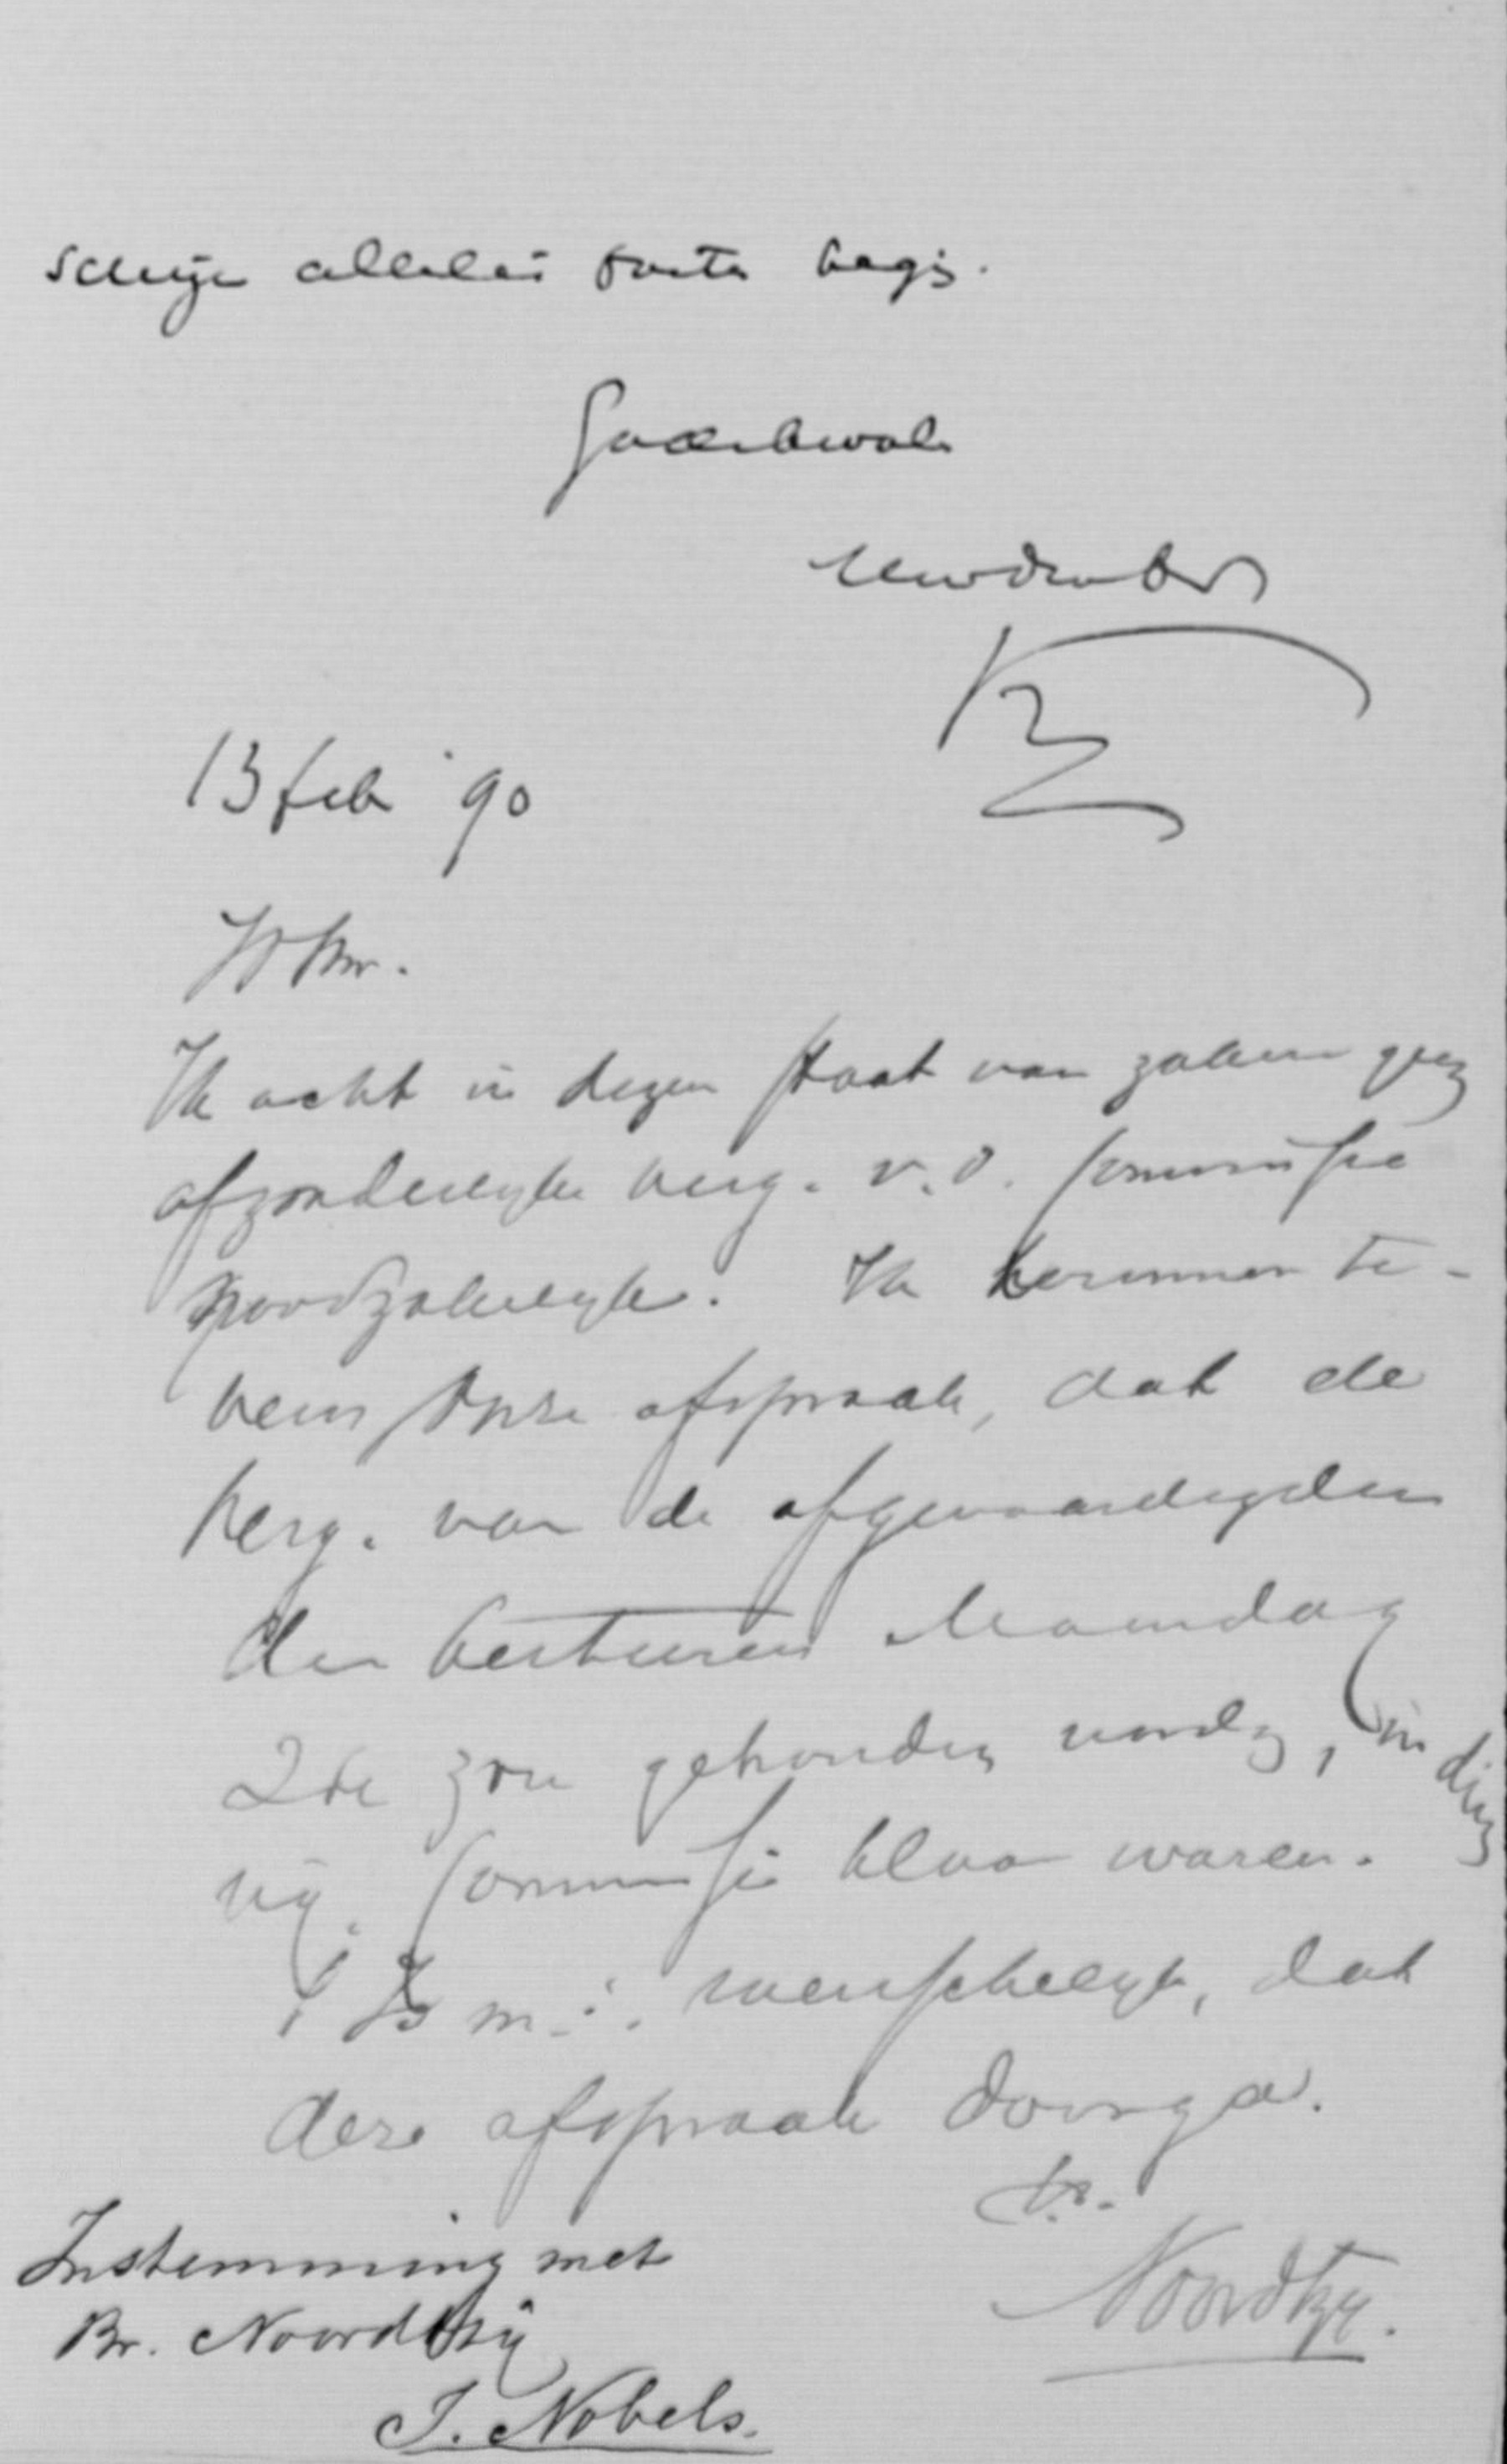 allerlei
13 feb '90
W Br.
Ik acht in dezen staat van zaken geen
afzonderlijke verg. v. d. Commissie
noodzakelijk. Ik herinner te-
vens onze afspraak, dat de
verg. van de afgevaardigden
der besturen Maandag
2de zou gehouden worden, indien
wij. Commissie klaar waren.
't Is m. i. wenschelijk, dat
deze afspraak doorga.
t.t.
Noordtzij.
Instemming met
Br. Noordtzij
J. Nobels.